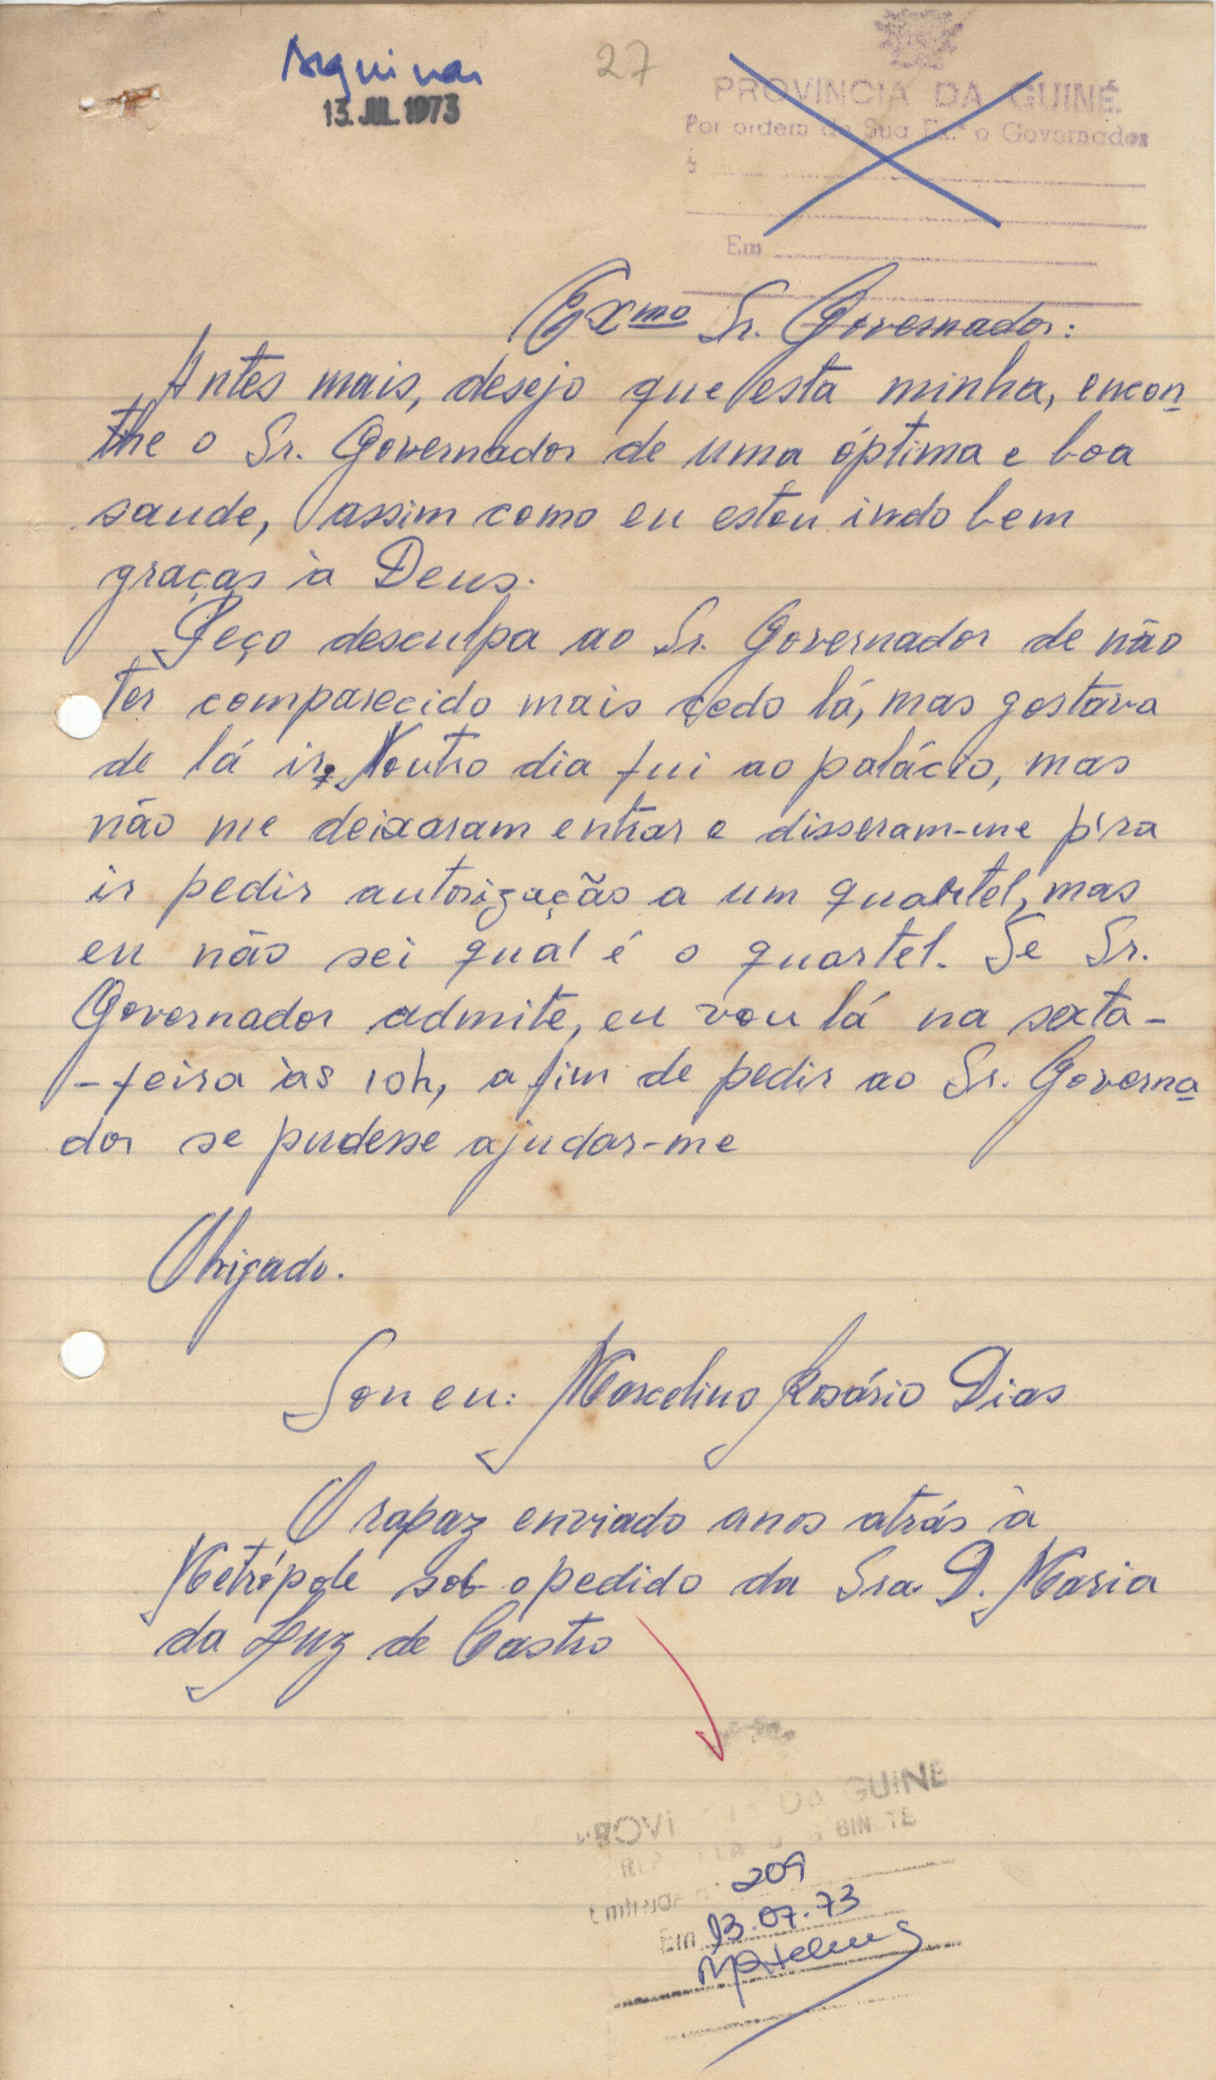 Arquivar
27
13. JUL. 1973
PROVINCIA DA GUINÉ
Por ordem de Sua Ex.ª o Governador
à
Em
Exmo Sr. Governador:
Antes mais, desejo que esta minha, encon
tre o Sr. Governador de uma óptima e boa
saude, assim como eu estou indo bem
graças à Deus.
Peço desculpa ao Sr. Governador de não
ter comparecido mais cedo lá, mas gostava
de lá ir. Noutro dia fui ao palácio, mas
não me deixaram entrar e disseram-me p'ra
ir pedir autorização a um quartel, mas
eu não sei qual é o quartel. Se Sr.
Governador admite, eu vou lá na sexta-
-feira às 10h, a fim de pedir ao Sr. Governa
dor se pudesse ajudar-me
Obrigado.
Sou eu: Marcelino Rosário Dias
O rapaz enviado anos atrás à
Metrópole sob o pedido da Sra. D. Maria
da Luz de Castro
DA GUINE
209
Em 13.07.73